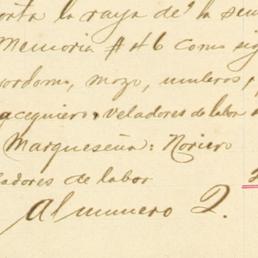 orta la raya de' la sem
Memoria # 46 como sig
ordomo, mozo, muleros,
acequiero, veladores de labor
Marqueseña: Noriero
adores de labor
Al numero 2.